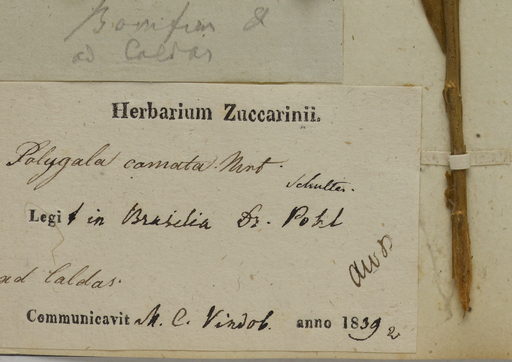 ad Caldas
Herbarium Zuccarinii.
Polygala comata Mrt.
Schultes.
Legit in Brasilia Dr. Pohl
ad Caldas.
Communicavit M. C. Vindob. anno 1839